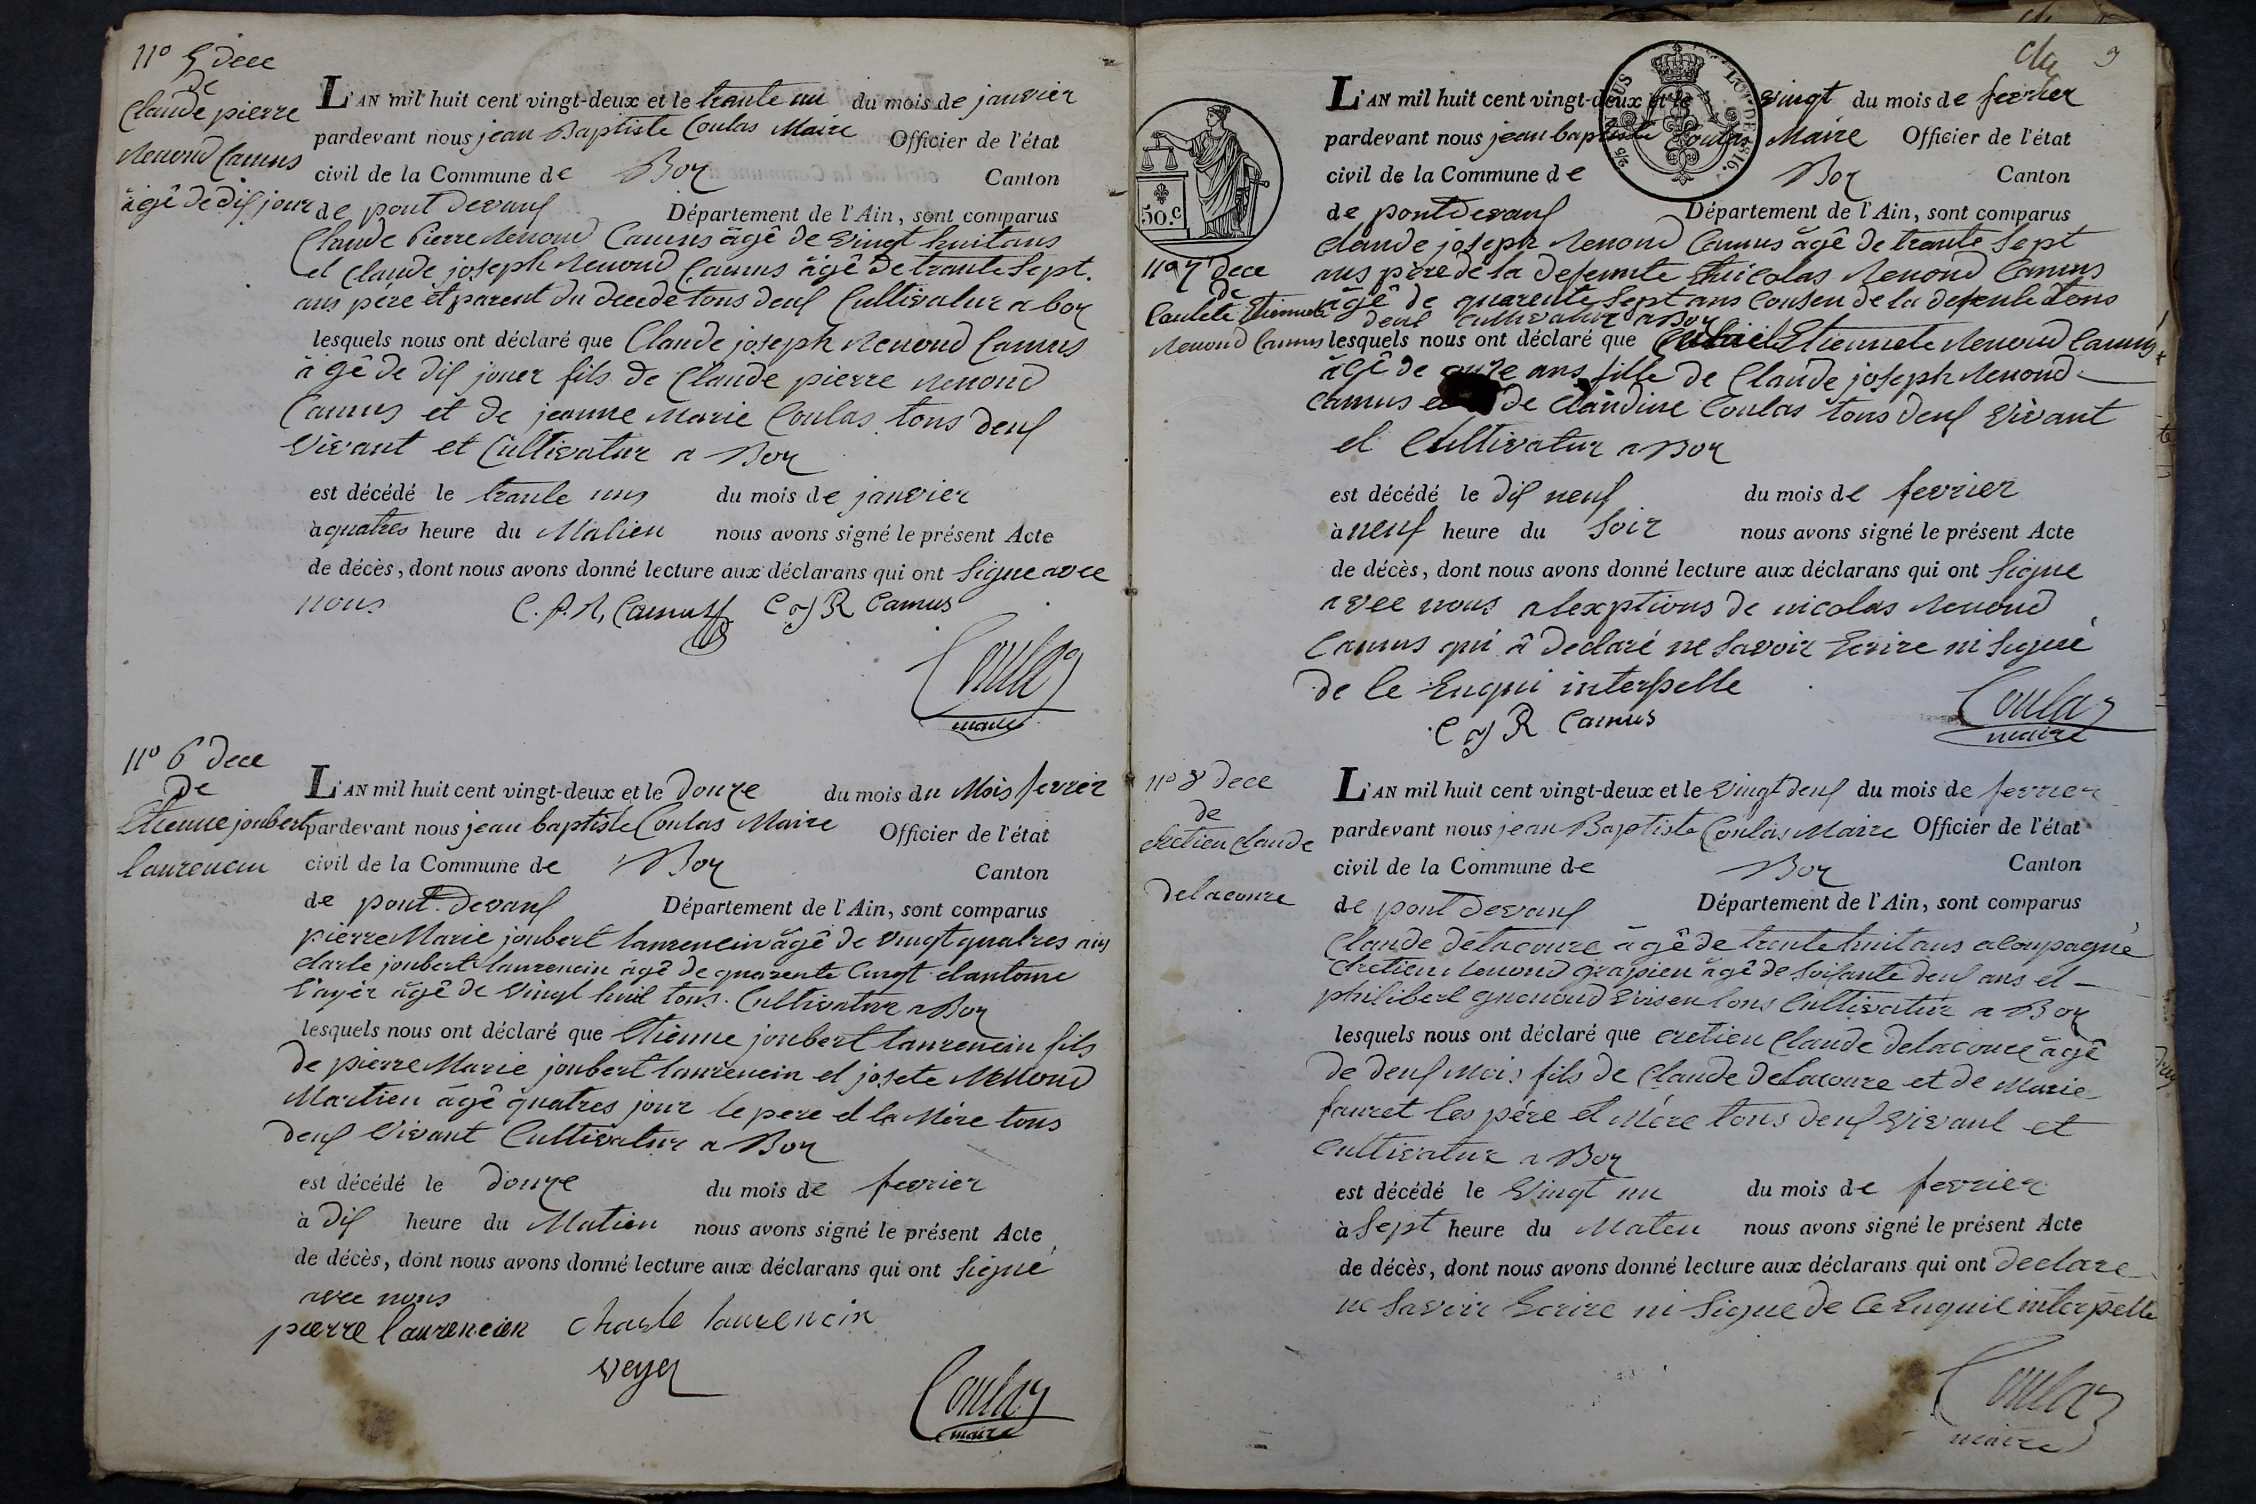 no 5 dece
de
Claude pierre
Renoud Camus
âgê de dix jour
L'AN mil huit cent vingt-deux et le trante un du mois de janvier
pardevant nous jean Baptiste Coulas Maire Officier de l'état
civil de la Commune de Boz Canton
de pont devaux Département de l'Ain, sont comparus
Claude Pierre Renoud Camus âgê de vingt huit ans
et Claude joseph Renoud Camus âgê de trante Sept
ans père et parent du decede tous deux Cultivatur a boz
lesquels nous ont déclaré que Claude joseph Renoud Camus
âgê de dix jouer fils de Claude pierre Renoud
Camus et de jeanne Marie Coulas tous deux
Vivant et Cultivatur a Boz
est décédé le trante uns du mois de janvier
à quatres heure du Matien nous avons signé le présent Acte
de décès, dont nous avons donné lecture aux déclarans qui ont Signe avec
nous C. P. R, Camus C J R Camus
Coulas
maire
no 6 dece
de
Etienne joubert
laurencin
L'AN mil huit cent vingt-deux et le douze du mois du Mois fevrier
pardevant nous jean baptiste Coulas Maire Officier de l'état
civil de la Commune de Boz Canton
de pont devaux Département de l'Ain, sont comparus
pierre Marie joubert laurencin âgê de vingt quatres ans
charle joubert laurencin âgê de quarente Cinqt dantoine
âgê de Vingt huit tous Cultivatur a Boz
lesquels nous ont déclaré que Etienne joubert laurencin fils
de pierre Marie joubert laurencin et josete Renoud
Martien âgê quatres jour le pere et la Mére tous
deux Vivant Cultivatur a Boz
est décédé le douze du mois de fevrier
à dix heure du Matien nous avons signé le présent Acte
de décès, dont nous avons donné lecture aux déclarans qui ont Signé
avec nous
pierre laurencien charle laurencin
veyer
Coulas
maire
9
50.c
LOI DE 1816.
no 7 dece
de
Etiennete
Renoud Camus
L'AN mil huit cent vingt-deux et le vingt du mois de fevrier
pardevant nous jean baptiste Coulas Maire Officier de l'état
civil de la Commune de Boz Canton
de pont devaux Département de l'Ain, sont comparus
Claude joseph Renoud Camus âgê de trante Sept
ans père de la defeunte Nicolas Renoud Camus
âgê de quarente Sept ans Cousen de la defeunte tous
deux Cultivatur a Boz
lesquels nous ont déclaré que Etiennete Renoud Camus
âgê de ans fille de Claude joseph Renoud
Camus et de Claudine Coulas tous deux Vivant
et Cultivatur a Boz
est décédé le dix neuf du mois de fevrier
à neuf heure du Soir nous avons signé le présent Acte
de décès, dont nous avons donné lecture aux déclarans qui ont Signe
avec nous alexptions de nicolas Renoud
Camus qui â declaré ne Savoir Ecrire ni Signé
de le Enqui interpelle
C J R Camus Coulas
maire
no 8 dece
de
cretien Claude
delacoure
L'AN mil huit cent vingt-deux et le Vingt deux du mois de fevrier
pardevant nous jean Baptiste Coulas Maire Officier de l'état
civil de la Commune de Boz Canton
de pont devaux Département de l'Ain, sont comparus
Claude delacoure âgê de trente huit ans acompagné
chretien Renoud grapien âgê de Soisante deux ans et
philibert tous Cultivatur a Boz
lesquels nous ont déclaré que cretien Claude delacoure âgê
de deux Mois fils de Claude delacoure et de Marie
fauret les pére et Mére tous deux Vivant et
Cultivatur a Boz
est décédé le Vingt un du mois de fevrier
à Sept heure du Maten nous avons signé le présent Acte
de décès, dont nous avons donné lecture aux déclarans qui ont declare
ne Savoir Ecrire ni Signe de Ce Enquie interpelle
Coulas
maire